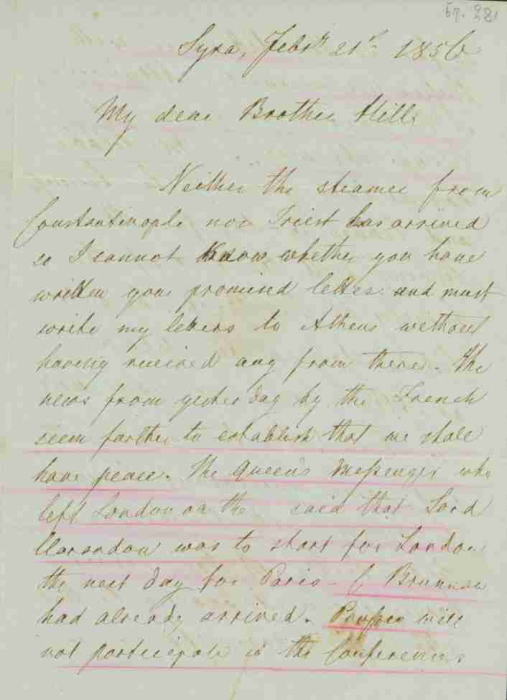 Syra, Feby. 21st. 1856
My dear Brother Hill
Neither the steamer from
Constantinople nor Triest has arrived
so I cannot know whether you have
written your promised letter and must
write my letters to Athens without
having received any from there. The
news from yesterday by the French
seem farther to establish that we shall
have peace. The Queen's Messenger who
left London on the said that Lord
Clarendon was to start for London
the next day for Paris - Brunnow
had already arrived. will
not participate in the Conferences